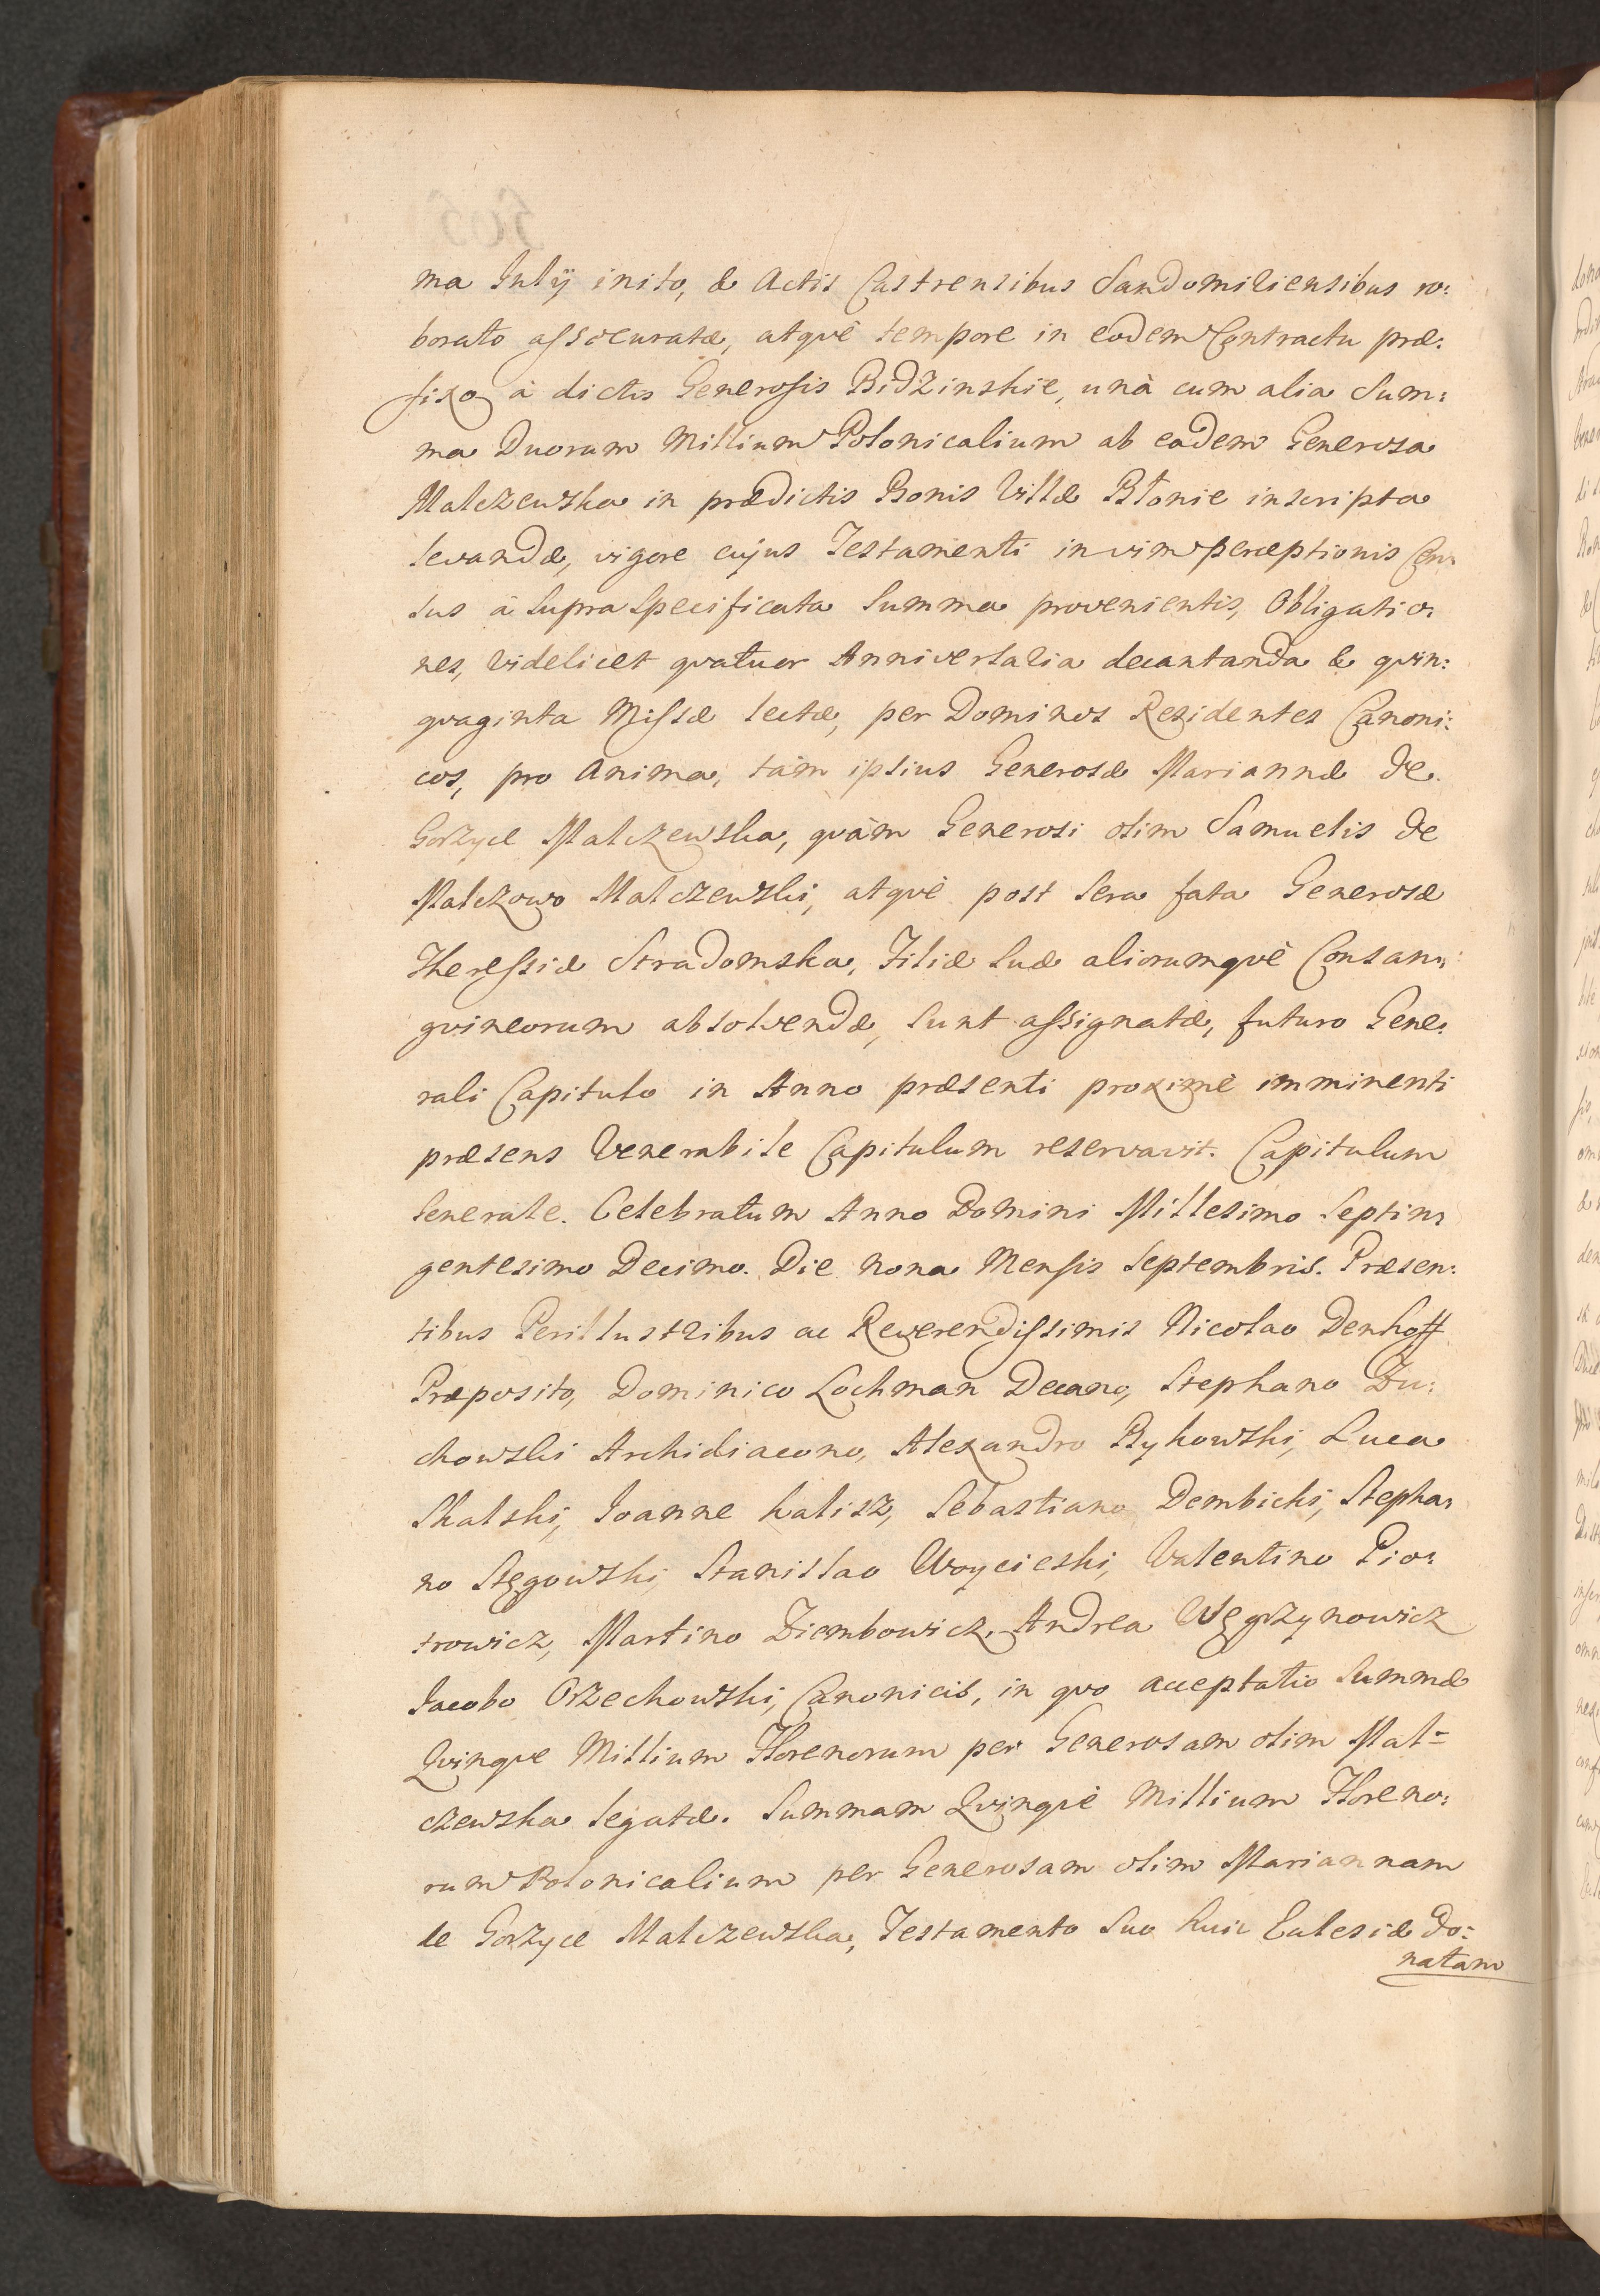 ma Julÿ inito, & Actis Castrensibus Sandomiriensibus ro:
borato assecuratæ, atqvè tempore in eodem Contractu præ:
fixo à dictis Generosis Bidzinskie, unà cum alia Sum:
ma Duorum Millium Polonicalium ab eadem Generosa
Malczewska in prædictis Bonis Villæ Błonie inscripta
levandæ, vigore cujus Testamenti in vim perceptionis Cen:
sus à supra specificata Summa provenientis, Obligatio:
nes, videlicet qvatuor Anniversaria decantanda & qvin:
qvaginta Missæ lectæ, per Dominos Residentes Canoni:
cos, pro Anima, tàm ipsius Generosæ Mariannæ de
Gorzyce Malczewska, qvàm Generosi olim Samuelis de
Malczowo Malczewski, atqvè post sera fata Generosæ
Theressiæ Stradomska, Filiæ suæ aliorumqvè Consan:
gvineorum absolvendæ, sunt assignatæ, futuro Gene:
rali Capitulo in Anno præsenti proximè imminenti
præsens Venerabile Capitulum reservavit. Capitulum
Generale. Celebratum Anno Domini Millesimo Septin:
gentesimo Decimo. Die nona Mensis Septembris. Præsen:
tibus Perillustribus ac Reverendissimis Nicolao Denhoff
Præposito, Dominico Lochman Decano, Stephano Żu:
chowski Archidiacono, Alexandro Bykowski, Luca
Skalski, Joanne Kalisz, Sebastiano Dembicki, Stepha:
no Stęgowski, Stanislao Woycieski, Valentino Pio:
trowicz, Martino Ziembowicz, Andrea Węgrzynowicz
Jacobo Orzechowski, Canonicis, in qvo acceptatio Summæ
Qvinqve Millium Florenorum per Generosam olim Mal=
czewska legatæ. Summam Qvinqvè Millium Floreno:
rum Polonicalium per Generosam olim Mariannam
de Gorzyce Malczewska, Testamento suo huic Eclesiæ do:
natam